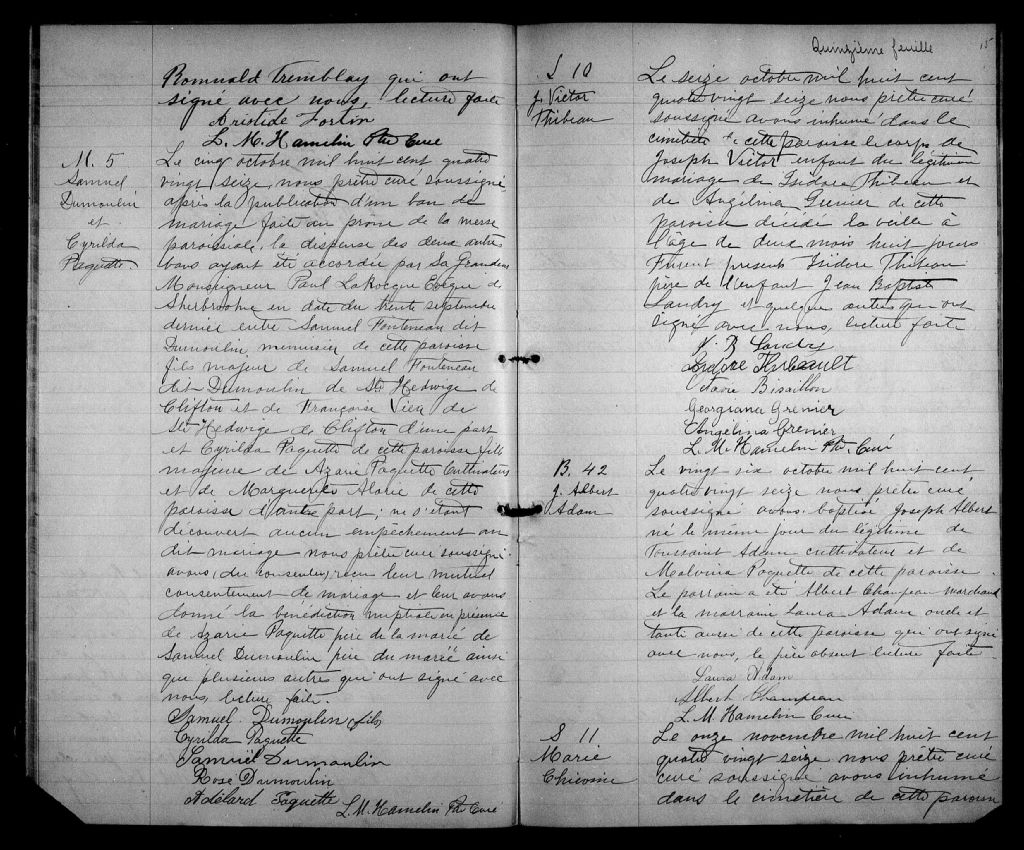 Romuald Tremblay qui ont
signé avec nous, lecture faite
Aristide Fortin
L. M. Hamelin Ptre Cure
M. 5
Samuel
Dumoulin
et
Cyrilda
Paquette.
Le cinq octobre mil huit cent quatre
vingt seize, nous prêtre curé soussigné
après la publication d'un ban de
mariage faite au prône de la messe
paroissiale, la dispense des deux autres
bans ayant été accordée par Sa Grandeur
Monseigneur Paul LaRocque Evêque de
Sherbrooke en date du trente septembre
dernier entre Samuel Fonteneau dit
Dumoulin, menuisier de cette paroisse
fils majeur de Samuel Fonteneau
dit Dumoulin de Ste Hedwige de
Clifton et de Françoise Vien de
Ste Hedwige de Clifton d'une part
et Cyrilda Paquette de cette paroisse fille
majeure de Azarie Paquette Cultivateur
et de Marguerite Alarie de cette
paroisse d'autre part; ne s'étant
découvert aucun empêchement au
dit mariage nous prêtre curé soussigné
avons reçu leur mutuel
consentement de mariage et leur avons
donné la bénédiction nuptiale en présence
de Azarie Paquette père de la marié de
Samuel Dumoulin père du marié ainsi
que plusieurs autres qui ont signé avec
nous, lecture faite.
Samuel Dumoulin fils
Cyrilda Paquette
Samuël Dumoulin
Rose Dumoulin
Adélard Paquette
L. M. Hamelin Ptre Cure
Quinzième feuille
15
S 10
J. Victor
Thibeau
Le seize octobre mil huit cent
quatre vingt seize nous prêtre curé
soussigné avons inhumé dans le
cimetière de cette paroisse le corps de
Joseph Victor enfant du légitime
mariage de Isidore Thibeau et
de Angélina Grenier de cette
paroisse décédé la veille à
l'âge de deux mois huit jours
Furent présents Isidore Thibeau
père de l'enfant Jean Baptiste
Landry et quelques autres qui ont
signé avec nous, lecture faite
J. B Landry
Isidore Thibault
Bisaillon
Georgiana Grenier
Angelina Grenier
L. M. Hamelin Ptr. Curé
B. 42
J. Albert
Adam
Le vingt six octobre mil huit cent
quatre vingt seize nous prêtre curé
soussigné avons baptisé Joseph Albert
né le même jour du légitime de
Toussaint Adam cultivateur et de
Malvina Paquette de cette paroisse
Le parrain a été Albert Champeau marchand
et la marraine Laura Adam oncle et
tante aussi de cette paroisse qui ont signé
avec nous, le père absent lecture faite
Laura Adam
Albert Champeau
L. M. Hamelin Cure
S 11
Marie
Chicoine
Le onze novembre mil huit cent
quatre vingt seize nous prêtre curé
curé soussigné avons inhumé
dans le cimetière de cette paroisse